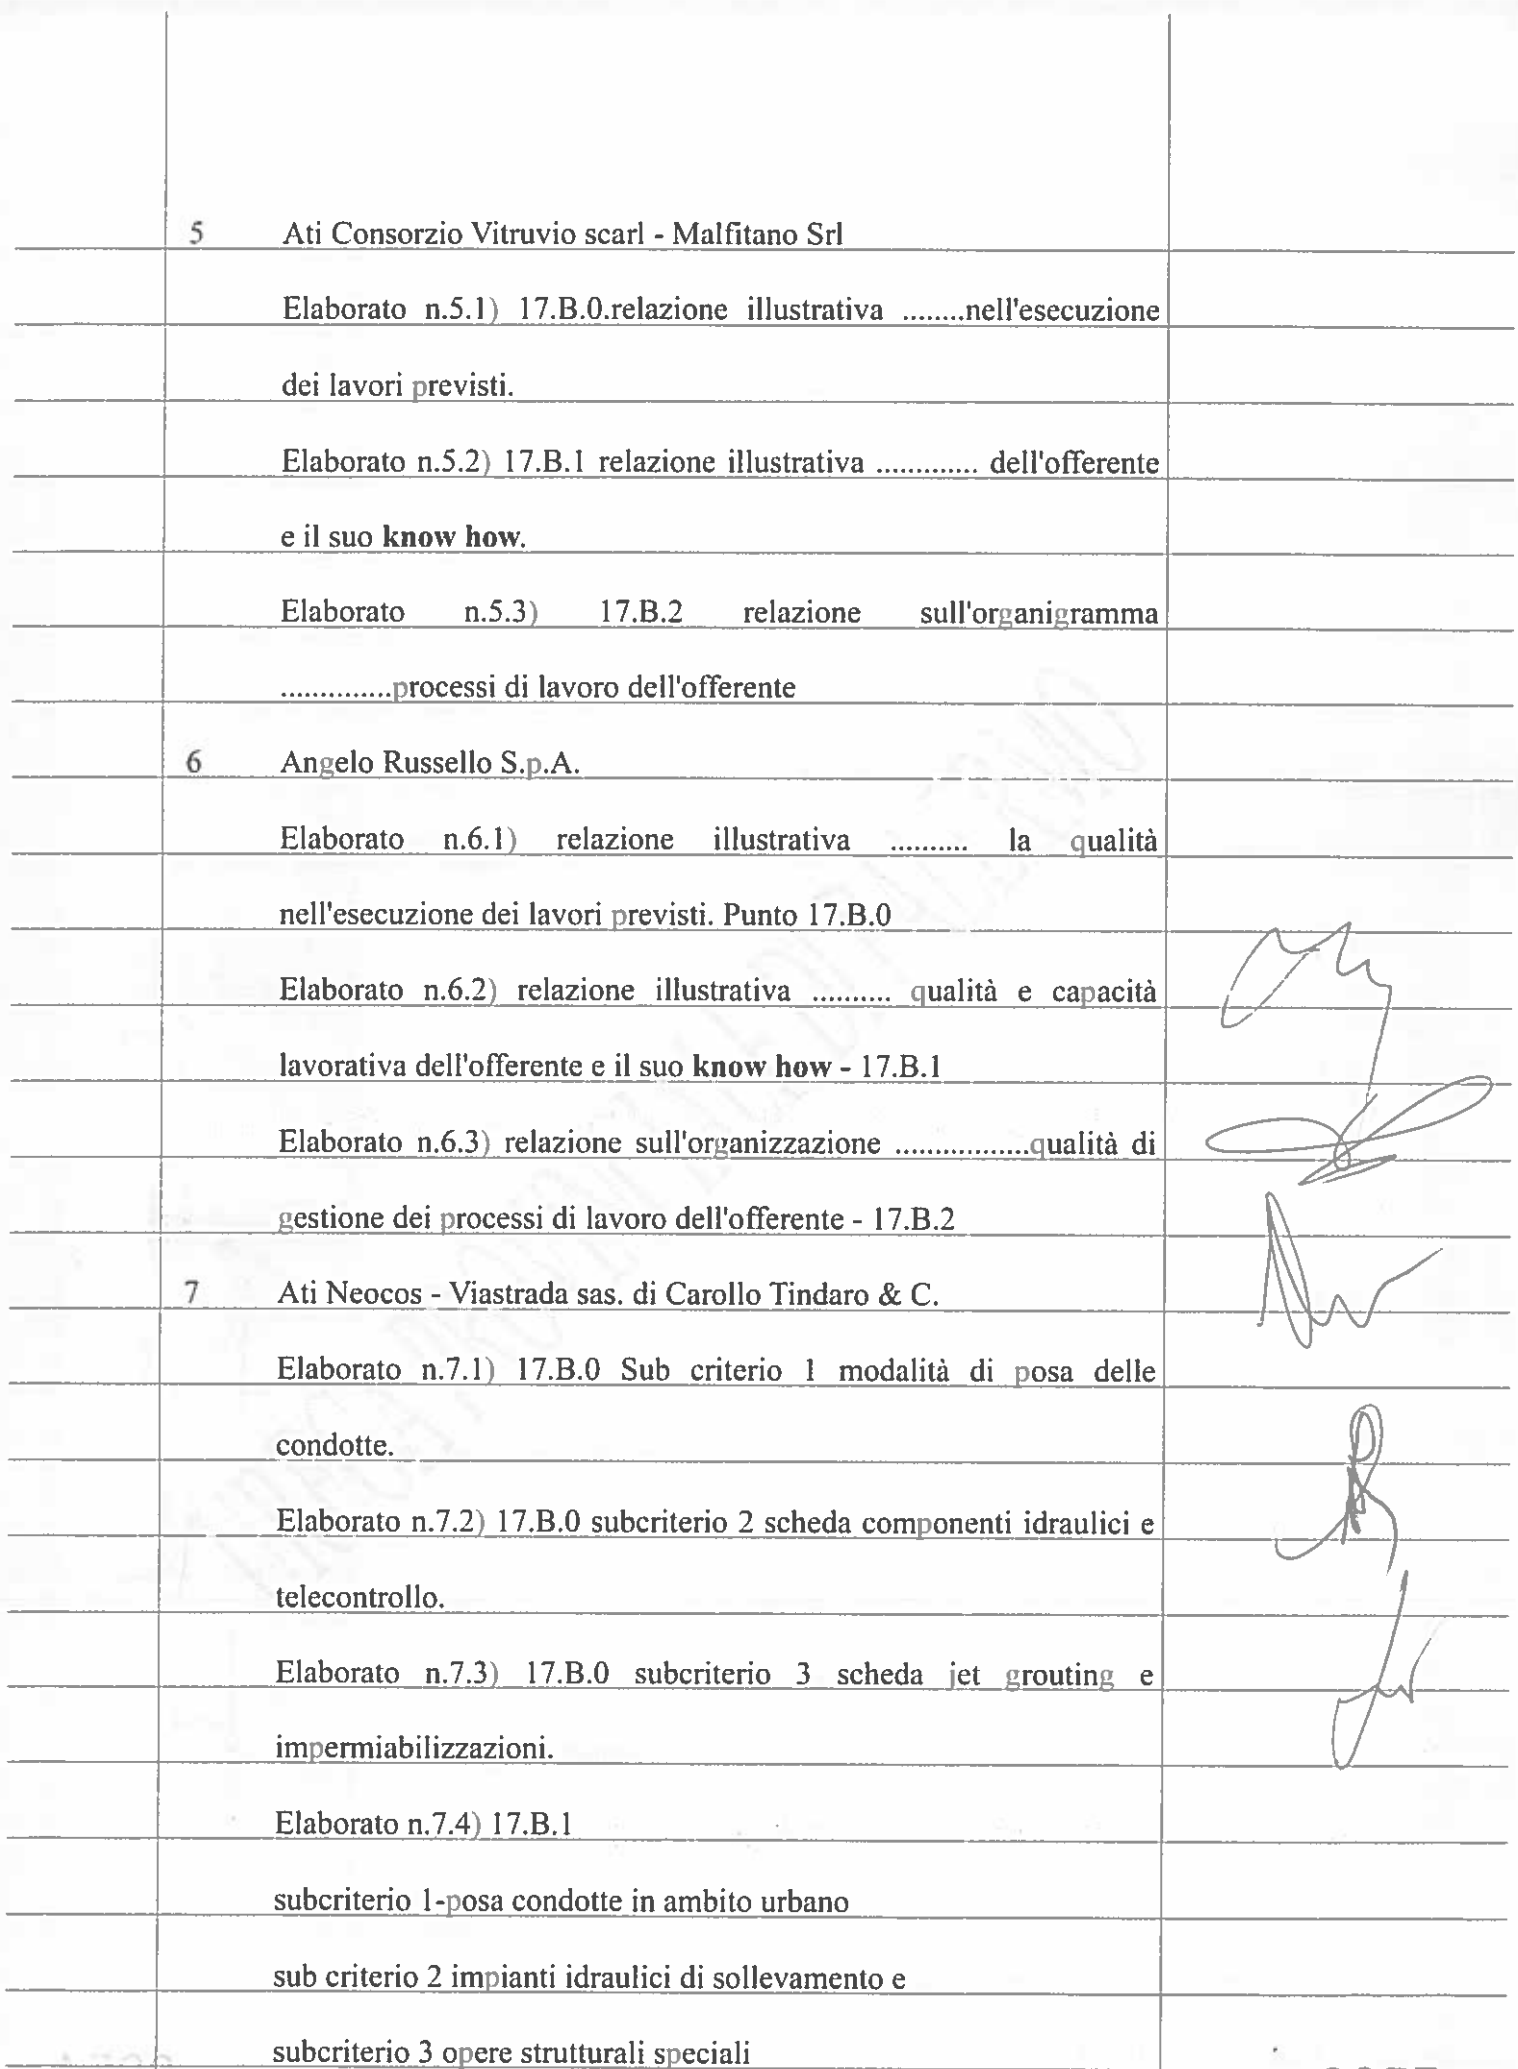 5 Ati Consorzio Vitruvio scarl - Malfitano Srl
Elaborato n.5.1) 17.B.0.relazione illustrativa ........nell'esecuzione
dei lavori previsti.
Elaborato n.5.2) 17.B.1 relazione illustrativa ............. dell'offerente
e il suo know how.
Elaborato n.5.3) 17.B.2 relazione sull'organigramma
..............processi di lavoro dell'offerente
6 Angelo Russello S.p.A.
Elaborato n.6.1) relazione illustrativa .......... la qualità
nell'esecuzione dei lavori previsti. Punto 17.B.0
Elaborato n.6.2) relazione illustrativa .......... qualità e capacità
lavorativa dell'offerente e il suo know how - 17.B.1
Elaborato n.6.3) relazione sull'organizzazione .................qualità di
gestione dei processi di lavoro dell'offerente - 17.B.2
7 Ati Neocos - Viastrada sas. di Carollo Tindaro & C.
Elaborato n.7.1) 17.B.0 Sub criterio 1 modalità di posa delle
condotte.
Elaborato n.7.2) 17.B.0 subcriterio 2 scheda componenti idraulici e
telecontrollo.
Elaborato n.7.3) 17.B.0 subcriterio 3 scheda jet grouting e
impermiabilizzazioni.
Elaborato n.7.4) 17.B.1
subcriterio 1-posa condotte in ambito urbano
sub criterio 2 impianti idraulici di sollevamento e
subcriterio 3 opere strutturali speciali